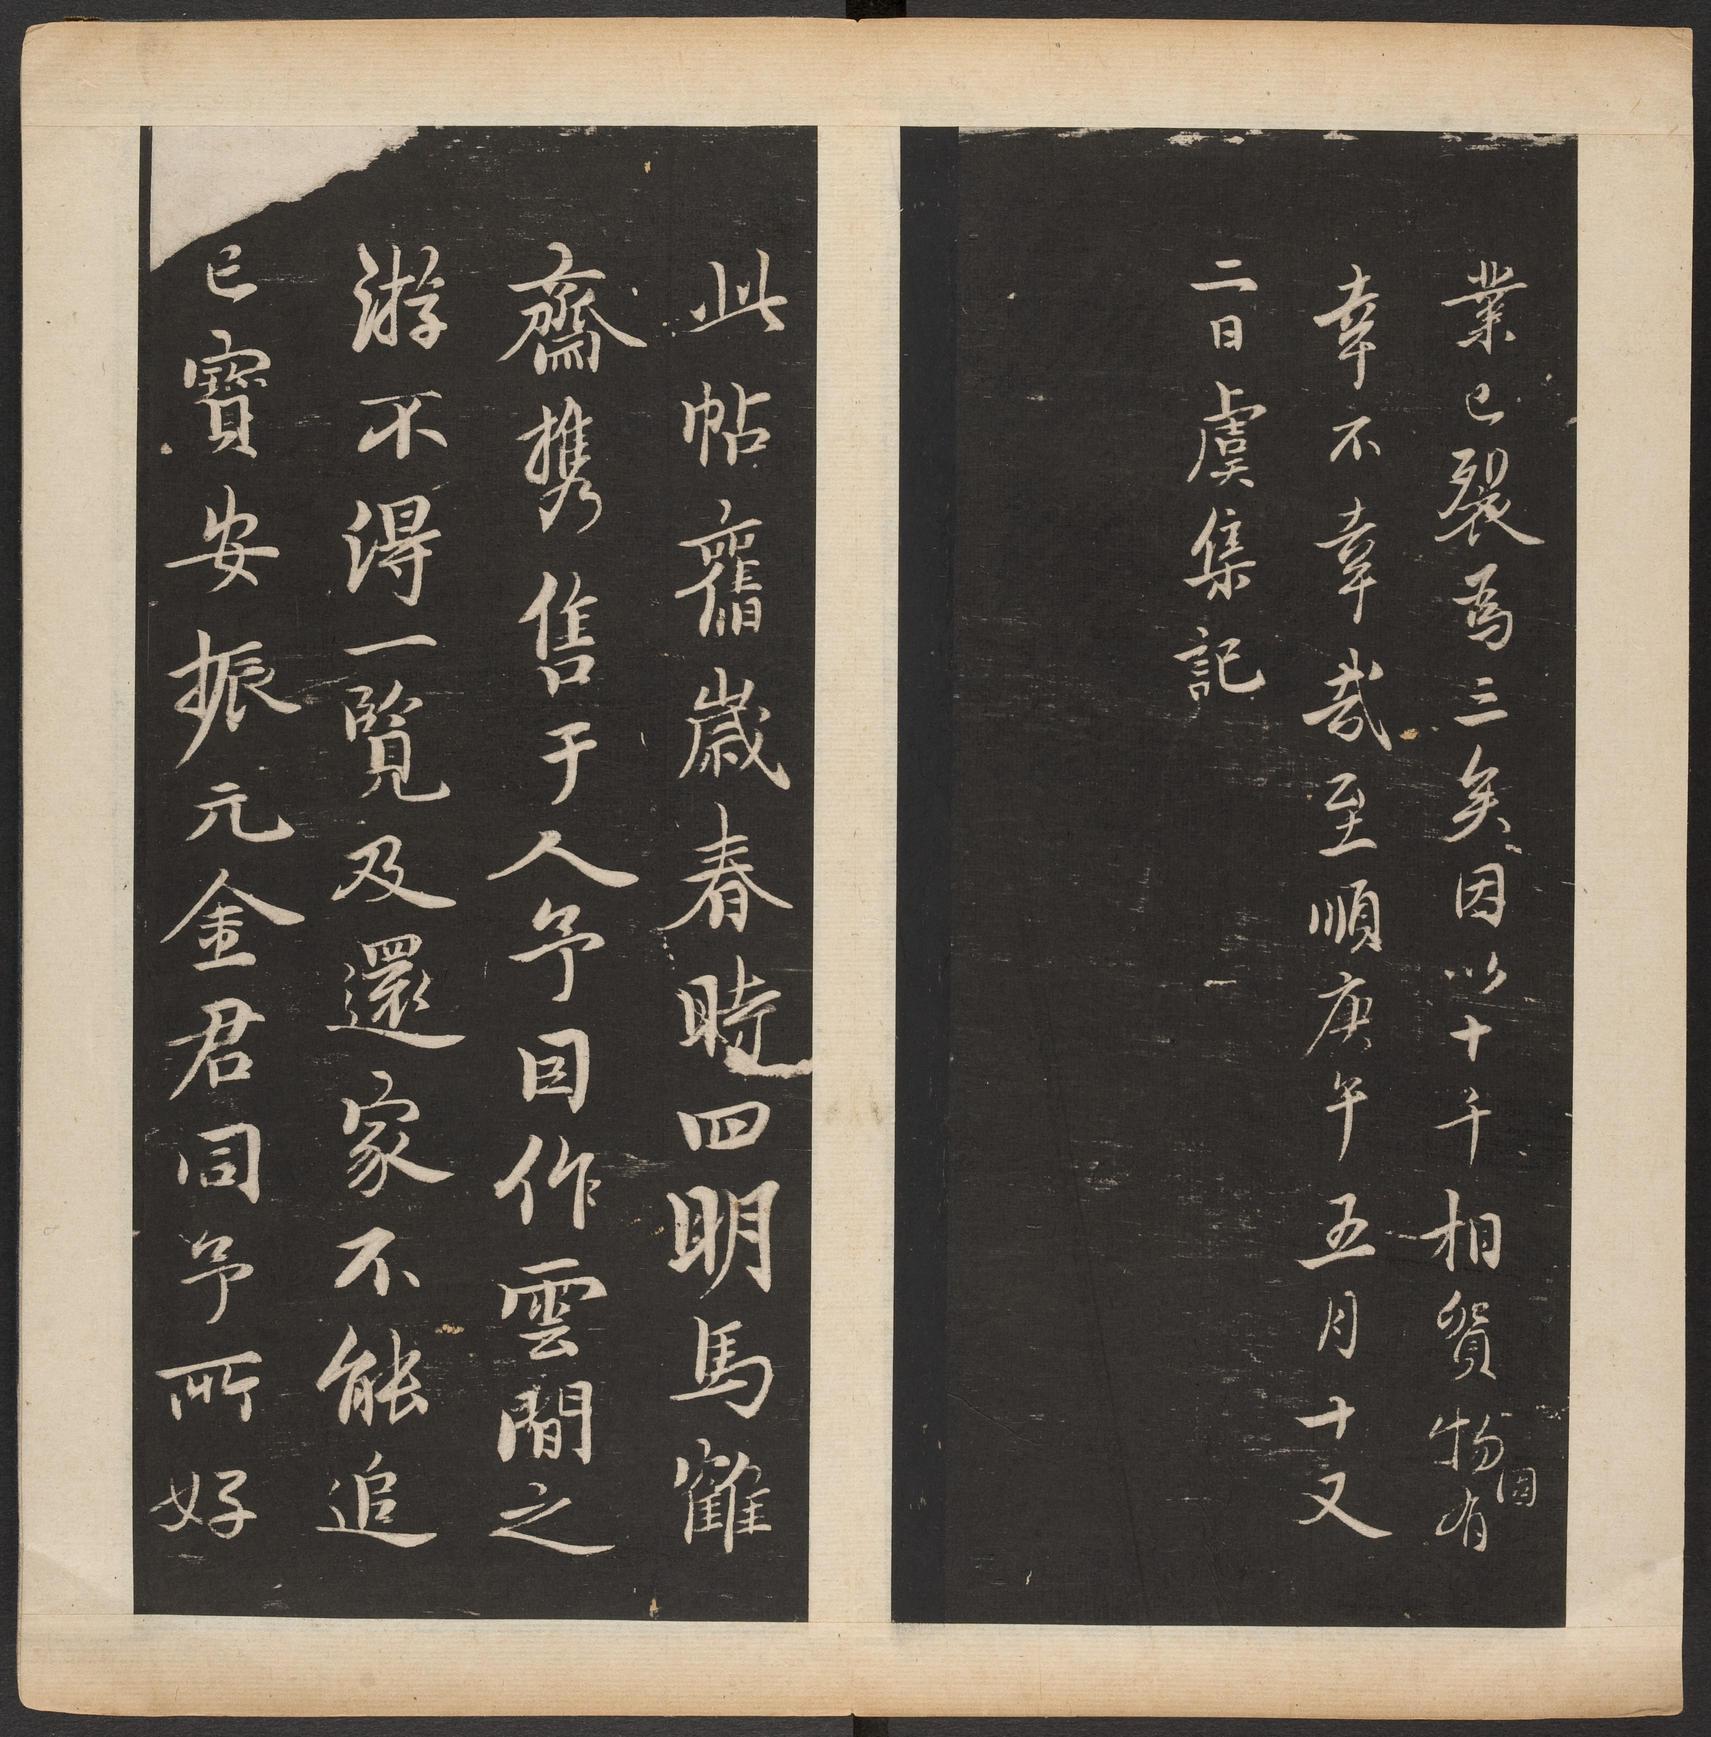 業已裂為三矣因以十千相貿物固有
幸不幸哉至順庚午五月十又
二日虞集記
此帖舊歲春時四明馬鶴
齋携售于人予因作雲間之
游不得一覧及還家不能追
已寶安振元金君同予所好